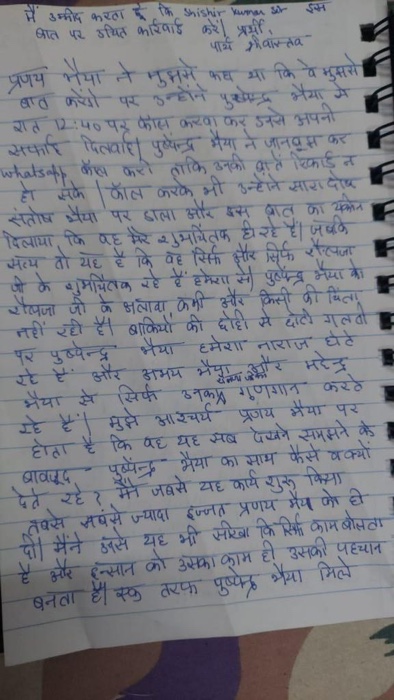 मैं उम्मीद करता हूँ कि Shishir Kumar जी इस
बात पर उचित कार्रवाई करें। प्रार्थी,
पार्थ श्रीवास्तव
प्रणय भैया ने मुझसे कहा था कि वे मुझसे
बात करेंगे पर उन्होंने पुष्पेन्द्र भैया से
रात 12:40 पर कॉल करवा कर उनसे अपनी
सफाई दिलवाई। पुष्पेन्द्र भैया ने जानबूझ कर
whatsapp कॉल करी ताकि उनकी बातें रिकॉर्ड न
हो सके। कॉल करके भी उन्होंने सारा दोष
संतोष भैया पर डाला और इस बात का यकीन
दिलाया कि वह मेरे शुभचिंतक ही रहे हैं। जबकि
सत्य तो यह है कि वह सिर्फ और सिर्फ शैलजा
जी के शुभचिंतक रहे हैं हमेशा से। पुष्पेन्द्र भैया को
शैलजा जी के अलावा कभी और किसी की चिंता
नहीं रही है। बाकियों की छोटी से छोटी गलती
पर पुष्पेन्द्र भैया हमेशा नाराज़ होते
रहे हैं और अभय भैया और महेन्द्र
भैया से सिर्फ उनका गुणगान करते
रहे हैं। मुझे आश्चर्य प्रणय भैया पर
होता है कि वह यह सब देखने समझने के
बावजूद पुष्पेन्द्र भैया का साथ कैसे व क्यों
देते रहे? मैंने जबसे यह कार्य शुरू किया
तबसे सबसे ज्यादा इज्जत प्रणय भैया को ही
दी। मैंने उनसे यह भी सीखा कि सिर्फ काम बोलता
है और इंसान को उसका काम ही उसकी पहचान
बनता है। एक तरफ पुष्पेन्द्र भैया मिले